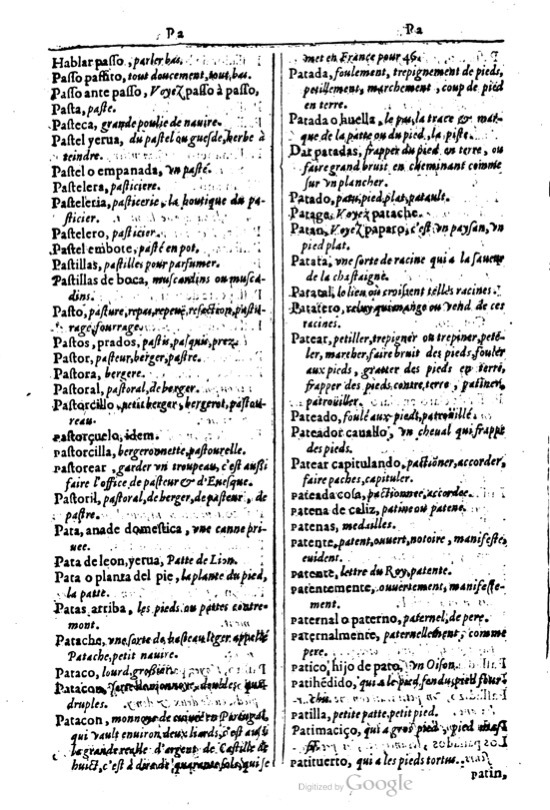 Pa
Hablar passo, parler bas.
Passo passito, tout doucement, tout bas.
Passo ante passo, Voyez passo à passo,
Pasta, paste.
Pasteca, grande poulie de nauire.
Pastel yerua, du pastel ou guesde, herbe à
teindre.
Pastel o empanada, vn pasté.
Pastelera, pasticiere.
Pasteleria, pasticerie, la boutique du pa-
sticier.
Pastelero, pasticier.
Pastel embote, pasté en pot.
Pastillas, pastilles pour parfumer.
Pastillas de boca, muscardins ou musca-
dins.
Pasto, pasture, repas, repeuë, refection, pastu-
rage, fourrage.
Pastos, prados, pastis, pasquis, prez.
Pastor, pasteur, berger, pastre.
Pastora, bergere.
Pastoral, pastoral, de berger.
Pastorcillo, petit berger, bergerot, pastou-
reau.
Pastorçuelo, idem.
Pastorcilla, bergeronnette, pastourelle.
Pastorear, garder vn troupeau, c'est aussi
faire l'office de pasteur & d'Euesque.
Pastoril, pastoral, de berger, de pasteur, de
pastre.
Pata, anade domestica, vne canne pri-
uee.
Pata de leon, yerua, Patte de Lion.
Pata o planta del pie, la plante du pied,
la patte.
Patas arriba, les pieds ou pattes contre-
mont.
Patache, vne sorte de basteau leger appellé
Patache, petit nauire.
Pataco, lourd, grossier.
Patacon,
druples.
Patacon, monnoye de Portugal,
qui vault environ deux liards, c'est aussi
la grande realle d'argent de Castille de
huict, c'est à dire de quarante sols, qui se
Pa
met en France pour 46.
Patada, foulement, trepignement de pieds,
petillement, marchement, coup de pied
en terre.
Patada o huella, le pas, la trace & mar-
que de la patte ou du pied, la piste.
Dar patadas, frapper du pied en terre, ou
faire grand bruit en cheminant comme
sur vn plancher.
Patado, patu, pied plat, patault.
Patage, Voyez patache.
Patan, Voyez paparo, c'est vn paysan, vn
pied plat.
Patata, vne sorte de racine qui a la saueur
de la chastaigne.
Patatal, lo lieu où croissent telles racines.
Patatero, celuy qui mange ou vend de ces
racines.
Patear, petiller, trepigner ou trepiner, peté-
ler, marcher, faire bruit des pieds, fouler
aux pieds, gratter des pieds en terre,
frapper des pieds contre terre, patiner,
patroüiller.
Pateado, foulé aux pieds, patroüillé.
Pateador cauallo, vn cheval qui frappe
des pieds.
Patear capitulando, pactioner, accorder,
faire paches, capituler.
Pateada cosa, pactionnee, accordee.
Patena de caliz, patine ou patene.
Patenas, medailles.
Patente, patent, ouuert, notoire, manifeste,
euident.
Patente, lettre du Roy, patente.
Patentemente, ouuertement, manifeste-
ment.
Paternal o paterno, paternel, de pere.
Paternalmente, paternellement, comme
pere.
Patico, hijo de pato, vn Oison.
Patihédido, qui a le pied fendu, pied four-
chu.
Patilla, petite patte, petit pied.
Patimaciço, qui a gros pied, pied massif.
Patituerto, qui a les pieds tortus.
patin,
Digitized by Google